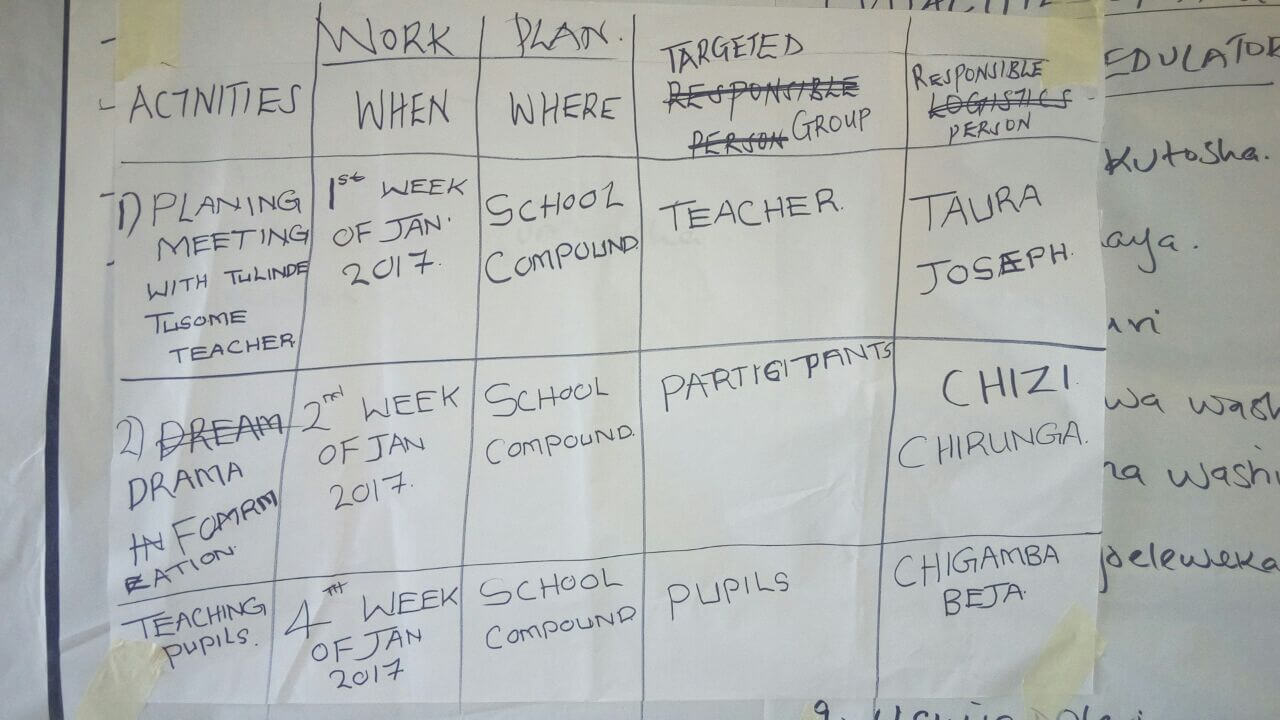 WORK PLAN.
ACTINITIES WHEN WHERE TARGETED RESPONSIBLE PERSON GROUP RESPONSIBLE LOGISTICS PERSON
1) PLANING
MEETING
WITH TULINDE
TUSOME
TEACHER
1st WEEK
OF JAN.
2017.
SCHOOL
COMPOUND
TEACHER.
TAURA
JOSEPH.
2) DREAM
DRAMA
IN FOMRM
EATION.
2nd WEEK
OF JAN
2017.
SCHOOL
COMPOUND.
PARTICIPANTS
CHIZI
CHIRUNGA.
TEACHING
PUPILS.
4TH WEEK
OF JAN
2017
SCHOOL
COMPOUND
PUPILS
CHIGAMBA
BEJA.
EDULATOR
Kutosha.
aya.
uri
wa wash
na washi
oeleweka